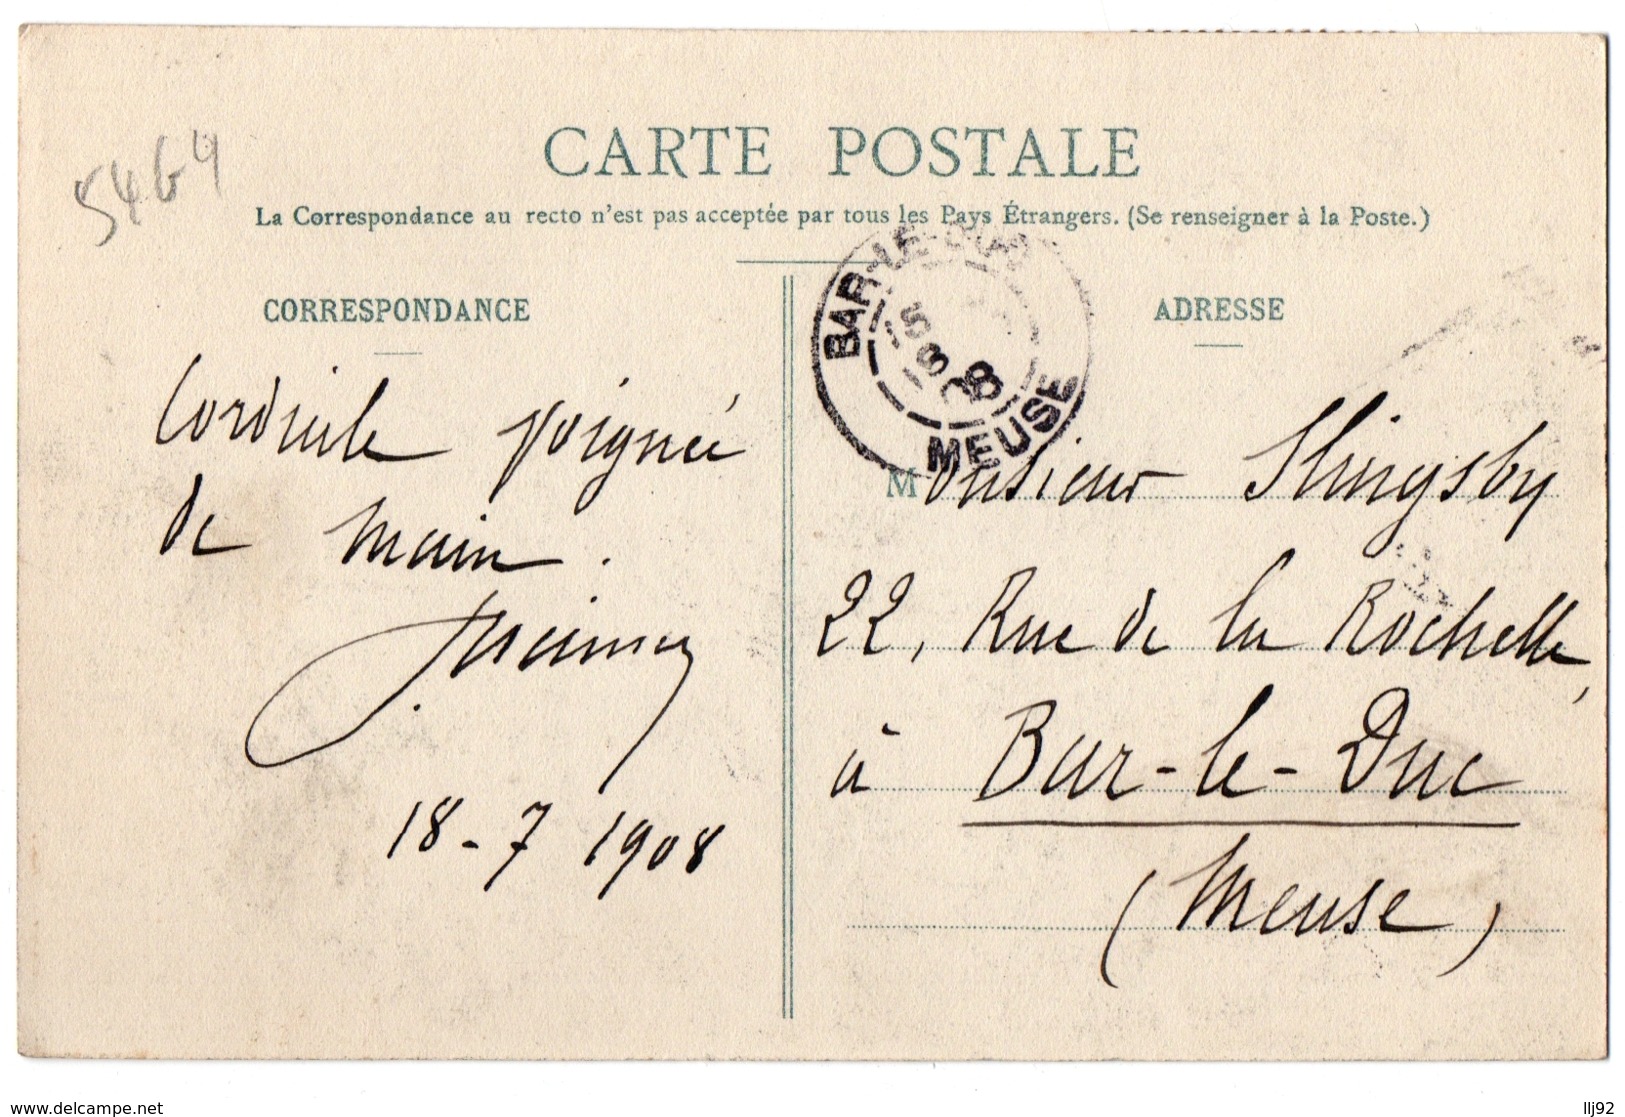 5464
CARTE POSTALE
La Correspondance au recto n'est pas acceptée par tous les Pays Étrangers. (Se renseigner à la Poste.)
CORRESPONDANCE
Cordiale poignée
de main.
18-7 1908
BAR-LE-DUC
MEUSE
ADRESSE
Monsieur Slingsby
22, Rue de la Rochelle,
à Bar-le-Duc
(Meuse)
www.delcampe.net
llj92